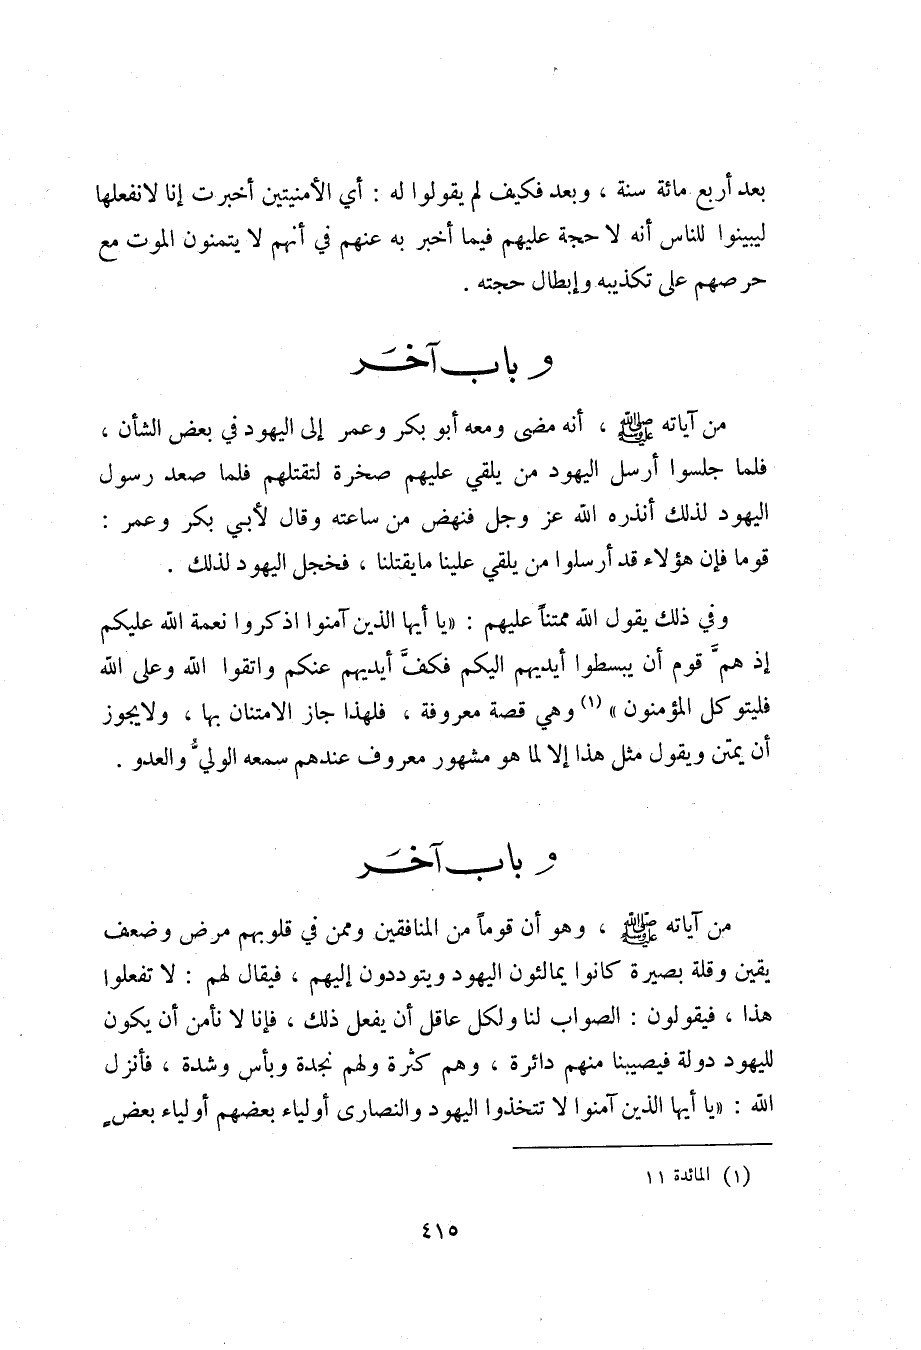 بعد أربع مائة سنة ، وبعد فكيف لم يقولوا له : أي الأمنيتين أخبرت إنا لانفعلها
ليبينوا للناس أنه لا حجة عليهم فيما أخبر به عنهم في أنهم لا يتمنون الموت مع
حرصهم على تكذيبه وإبطال حجته .
وباب آخَر
من آياته ﷺ ، أنه مضى ومعه أبو بكر وعمر إلى اليهود في بعض الشأن ،
فلما جلسوا أرسل اليهود من يلقي عليهم صخرة لتقتلهم فلما صعد رسول
اليهود لذلك أنذره الله عز وجل فنهض من ساعته وقال لأبي بكر وعمر :
قوما فإن هؤلاء قد أرسلوا من يلقي علينا مايقتلنا ، فخجل اليهود لذلك .
وفي ذلك يقول الله ممتناً عليهم : «يا أيها الذين آمنوا اذكروا نعمة الله عليكم
إذ همَّ قوم أن يبسطوا أيديهم اليكم فكفَّ أيديهم عنكم واتقوا الله وعلى الله
فليتوكل المؤمنون » (١) وهي قصة معروفة ، فلهذا جاز الامتنان بها ، ولايجوز
أن يمتّن ويقول مثل هذا إلا لما هو مشهور معروف عندهم سمعه الوليُّ والعدو .
وباب آخَر
من آياته ﷺ ، وهو أن قوماً من المنافقين وممن في قلوبهم مرض وضعف
يقين وقلة بصيرة كانوا يمالئون اليهود ويتوددون إليهم ، فيقال لهم : لا تفعلوا
هذا ، فيقولون : الصواب لنا ولكل عاقل أن يفعل ذلك ، فإنا لا نأمن أن يكون
لليهود دولة فيصيبنا منهم دائرة ، وهم كثرة ولهم نجدة وبأس وشدة ، فأنزل
الله : «يا أيها الذين آمنوا لا تتخذوا اليهود والنصارى أولياء بعضهم أولياء بعض
(١) المائدة ١١
٤١٥